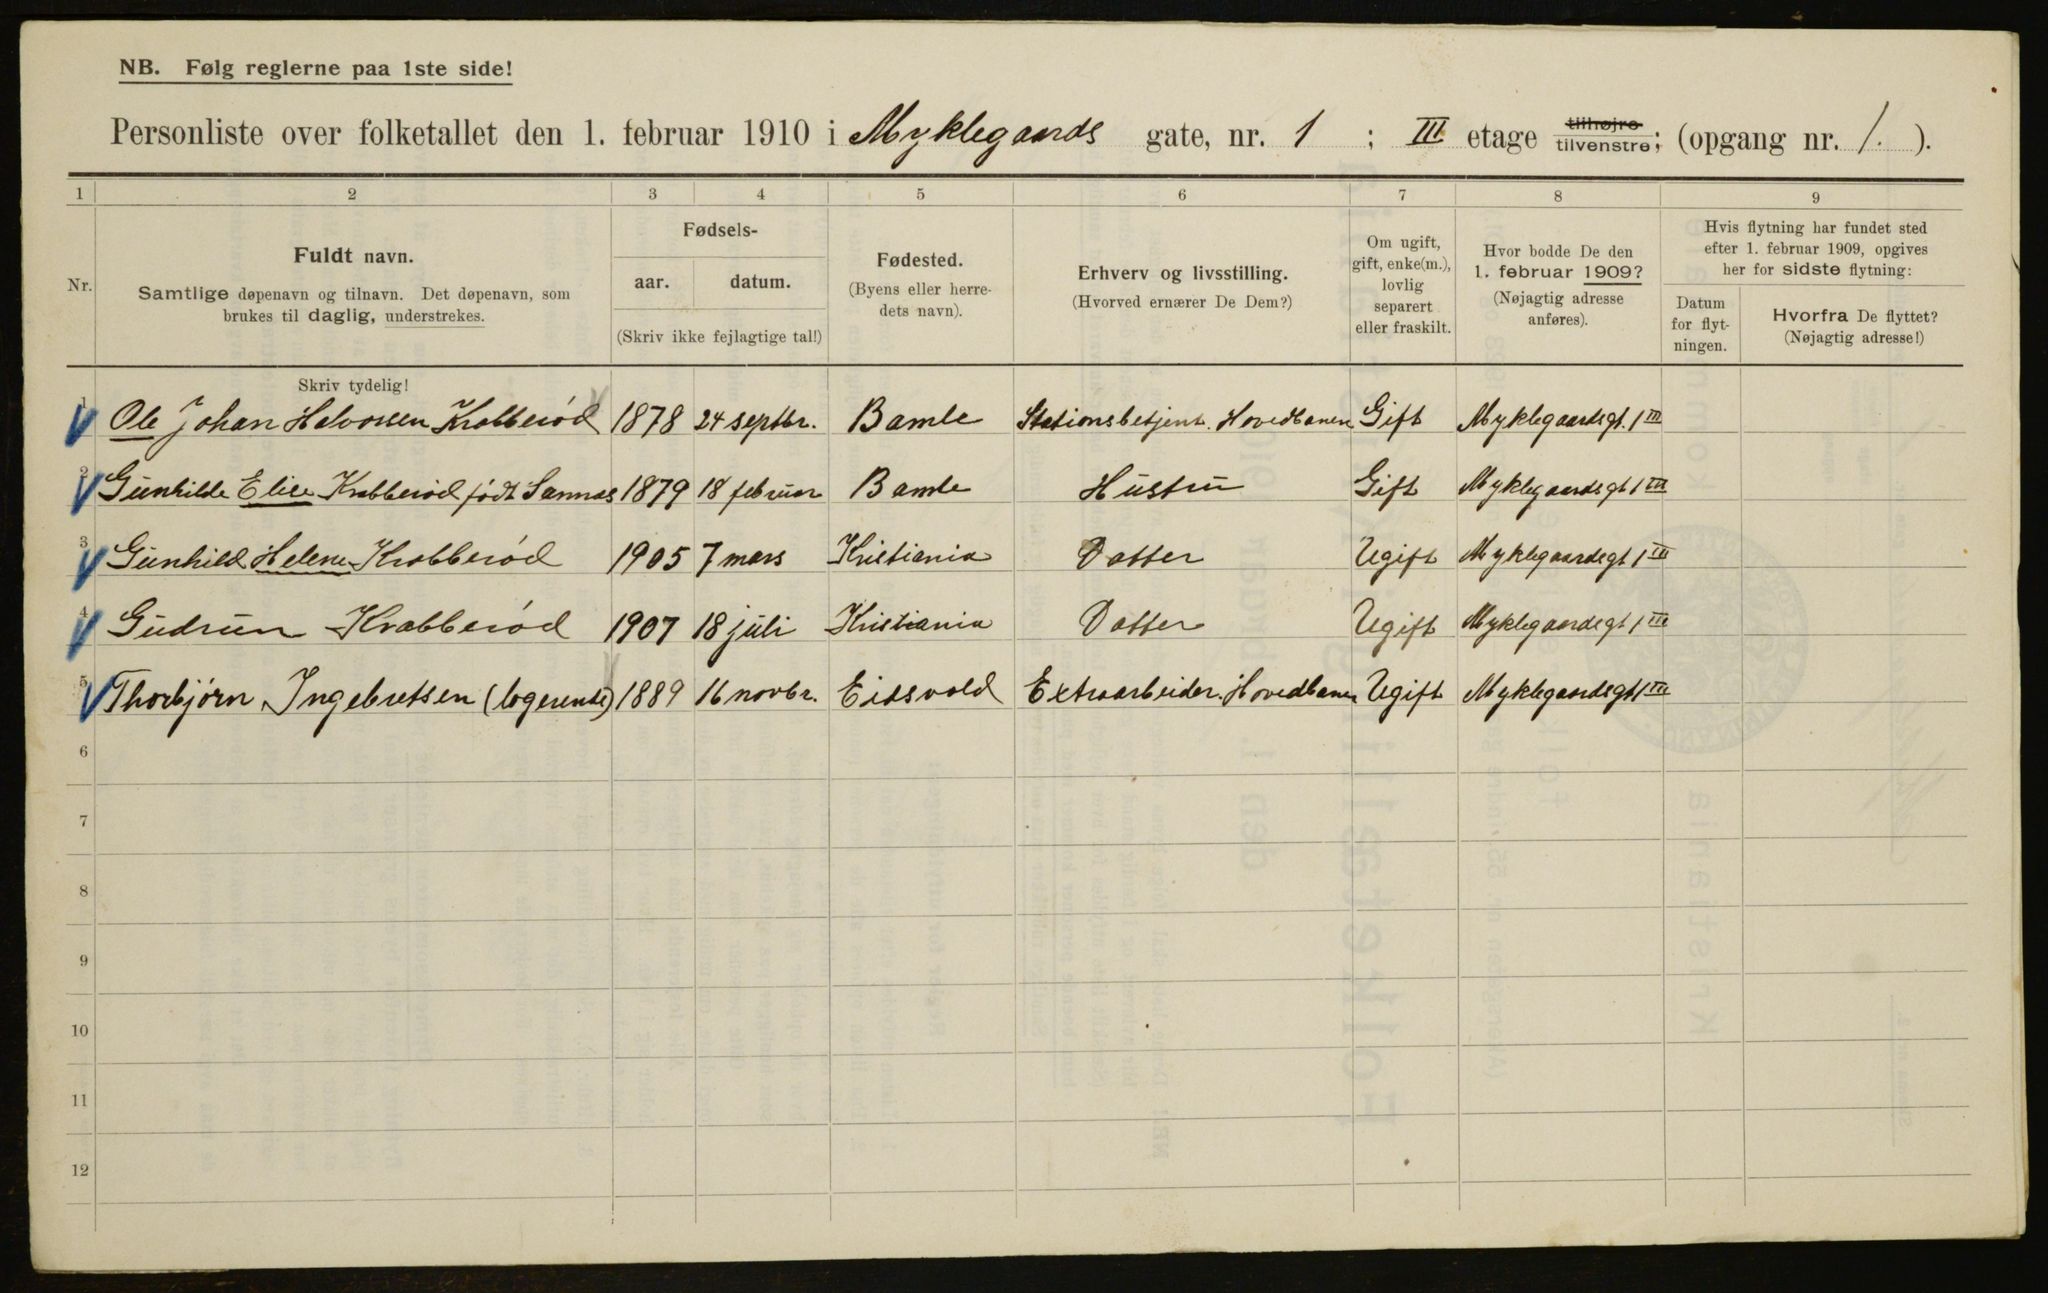 NB. Følg reglerne paa 1ste side!
Personliste over folketallet den 1. februar 1910 i Myklegaards gate, nr. 1 ; III etage tilhøjre tilvenstre; (opgang nr. 1. ).
1 2 3 4 5 6 7 8 9
Nr.
Fuldt navn.
Samtlige døpenavn og tilnavn. Det døpenavn, som
brukes til daglig, understrekes.
Fødsels-
aar. datum.
(Skriv ikke fejlagtige tal!)
Fødested.
(Byens eller herre-
dets navn).
Erhverv og livsstilling.
(Hvorved ernærer De Dem?)
Om ugift,
gift, enke(m.),
lovlig
separert
eller fraskilt.
Hvor bodde De den
1. februar 1909?
(Nøjagtig adresse
anføres).
Hvis flytning har fundet sted
efter 1. februar 1909, opgives
her for sidste flytning:
Datum
for flyt-
ningen.
Hvorfra De flyttet?
(Nøjagtig adresse!)
Skriv tydelig!
1 Ole Johan Halvorsen Krabberød 1878 24 septbr. Bamle Stationsbetjent. Hovedbanen Gift Myklegaardsgt. 1 III
2 Gunhilde Elise Krabberød født Sannæs 1879 18 februar Bamle Hustru Gift Myklegaardsgt 1 III
3 Gunhild Helene Krabberød 1905 7 mars Kristiania Datter Ugift Myklegaardsgt 1 III
4 Gudrun Krabberød 1907 18 juli Kristiania Datter Ugift Myklegaardsgt 1 III
5 Thorbjørn Ingebretsen (logerende) 1889 16 novbr. Eidsvold Extraarbeider. Hovedbanen Ugift Myklegaardsgt 1 III
6
7
8
9
10
11
12